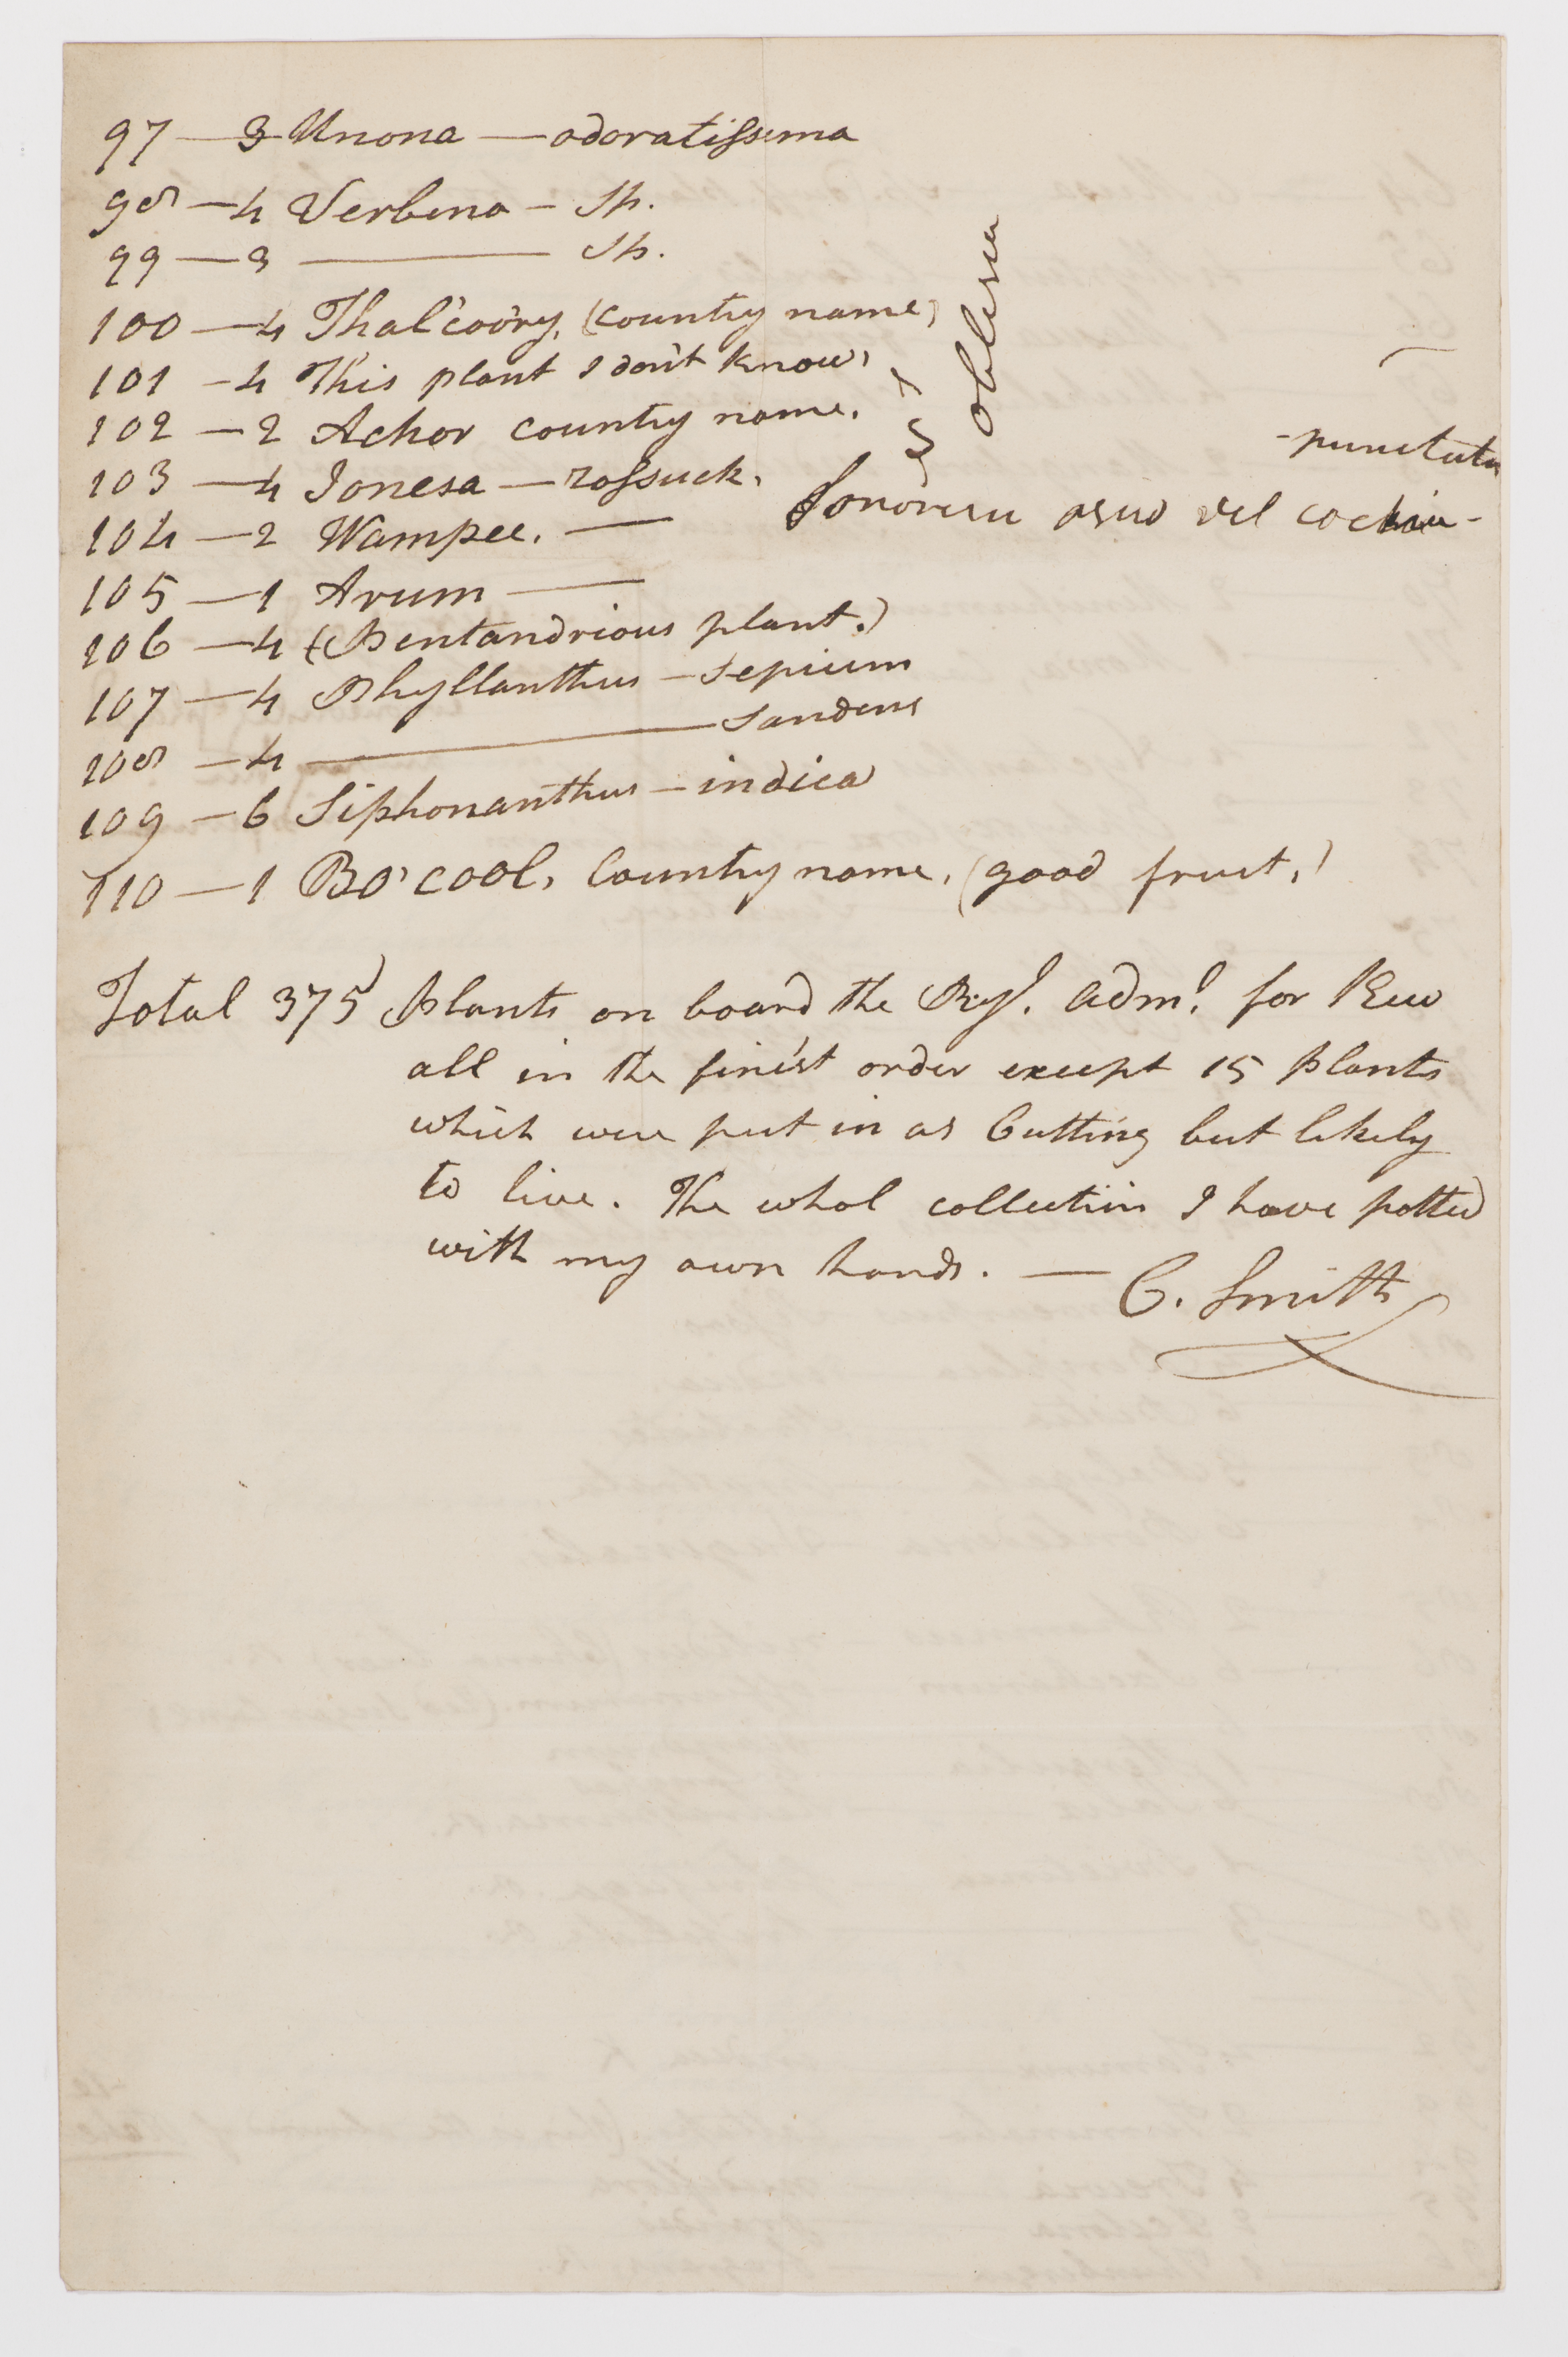 97 — 3 Unona — odoratissima
98 — 4 Verbena — Sp.
99 — 3 ——— Sp.
100 — 4 Thal'coory, (country name)
101 — 4 This plant I don't know,
102 — 2 Achor country name.
103 — 4 Jonesa — rossuck.
104 — 2 Wampee. —
105 — 1 Arum —
106 — 4 (Pentandrious plant.)
107 — 4 Phyllanthus — Sepium
108 — 4 ——— Sandens
109 — 6 Siphonanthus — indica
110 — 1 Bo'cool, Country name, (good fruit,)
punctata
vel
Total 375) Plants on board the Ryl. Adml. for Kew
all in the finest order except 15 plants
which were put in as Cutting but likely
to live. The whol collection I have potted
with my own hands. — C. Smith